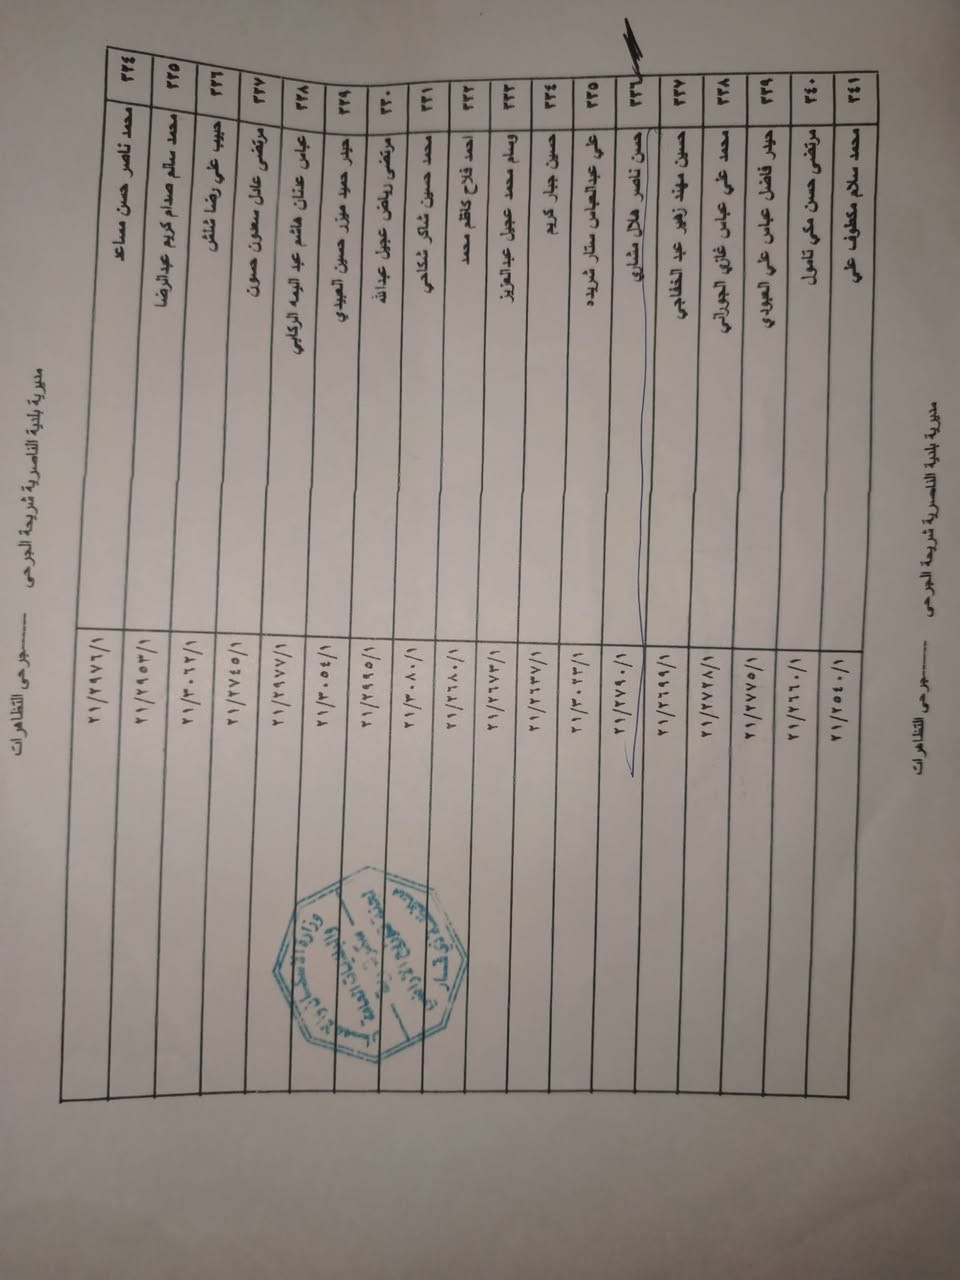 مديرية بلدية الناصرية شريحة الجرحى -------جرحى التظاهرات
٣٢٤ محمد ناصر حسن مساعد ٢١/٢٩٧٦/١
٣٢٥ محمد سالم صدام كريم عبدالرضا ٢١/٢٩٥٣/١
٣٢٦ حبيب علي رضا شلش ٢١/٣٠٦٢/١
٣٢٧ مرتضى عادل سعدون حسون ٢١/٢٧٤٥/١
٣٢٨ عباس عدنان هاشم عبد اليمه الركابي ٢١/٢٩٧٧/١
٣٢٩ حيدر حميد ميزر حسين العبيدي ٢١/٣٠٥٤/١
٣٣٠ مرتضى رياض عجيل عبدالله ٢١/٢٩٩٥/١
٣٣١ محمد حسين شاكر شكاحي ٢١/٣٠٨٠/١
٣٣٢ احمد فلاح كاظم محمد ٢١/٢٦٨٠/١
٣٣٣ وسام محمد عجيل عبدالعزيز ٢١/٢٦٧٣/١
٣٣٤ حسين جبار كريم ٢١/٢٦٣٧/١
٣٣٥ علي عبدالعباس ستار شريده ٢١/٣٠٢٣/١
٣٣٦ حسن ناصر هلال مشاري ٢١/٢٧٩٠/١
٣٣٧ حسين مهند زهير عبد الخفاجي ٢١/٢٦٩٩/١
٣٣٨ محمد علي عباس غازي الجوراني ٢١/٢٧٢٨/١
٣٣٩ حيدر فاضل عباس علي العبودي ٢١/٢٧٧٥/١
٣٤٠ مرتضى حسن مكي نامول ٢١/٢٦٦٠/١
٣٤١ محمد سلام مكطوف علي ٢١/٢٥٤٠/١
وزارة الاسكان والاعمار
والبلديات العامة
لجنة توزيع الاراضي
مديرية بلدية الناصرية شريحة الجرحى -------جرحى التظاهرات